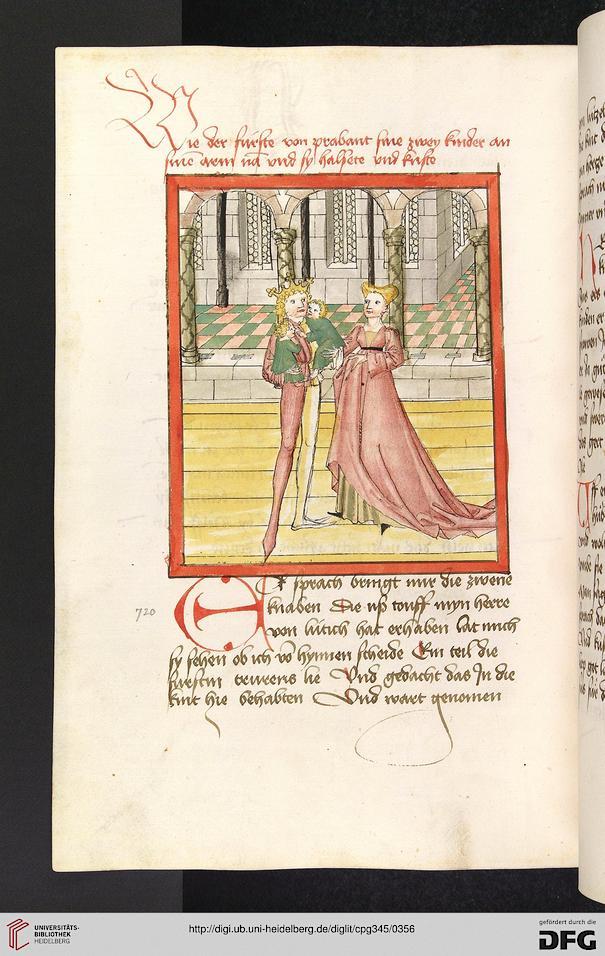 Wie der furste von prabant sine zwey kinder an
sine arm nā vnd sy halsete vnd kuste
Er sprach bringt mir die zwene
knaben Die vsz touff myn herre
von lutich hat erhaben Lat mich
sy sehen ob ich vō hynnen scheide Ein teil die
furstin truwrens lie Vnd gedacht das In die
kint hie behabten Vnd wart genomen
720
UNIVERSITÄTS-
BIBLIOTHEK
HEIDELBERG
http://digi.ub.uni-heidelberg.de/diglit/cpg345/0356
gefördert durch die
DFG